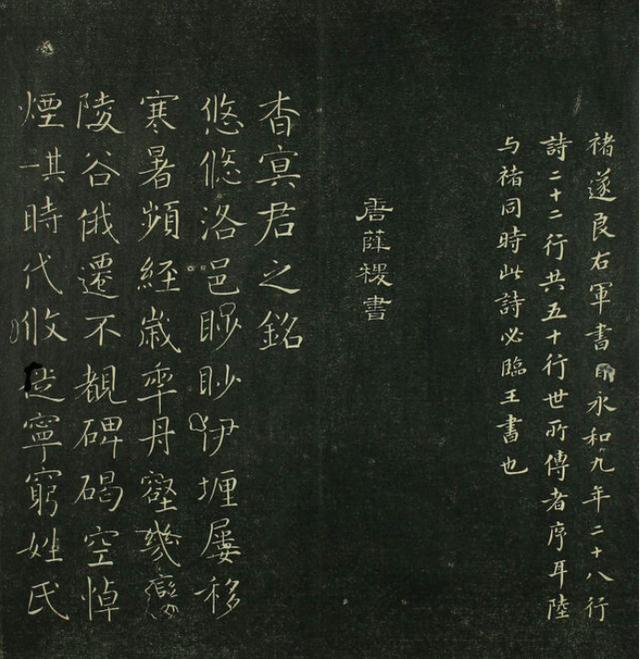 褚遂良右軍書目永和九年二十八行
詩二十二行共五十行世所傳者序耳陸
与褚同時此詩必臨王書也
唐薛稷書
杳冥君之銘
悠悠洛邑眇眇伊壥屢移
寒暑頻経歳率丹壑幾變
陵谷俄遷不覩碑碣空悼
煙時代攸寧窮姓氏